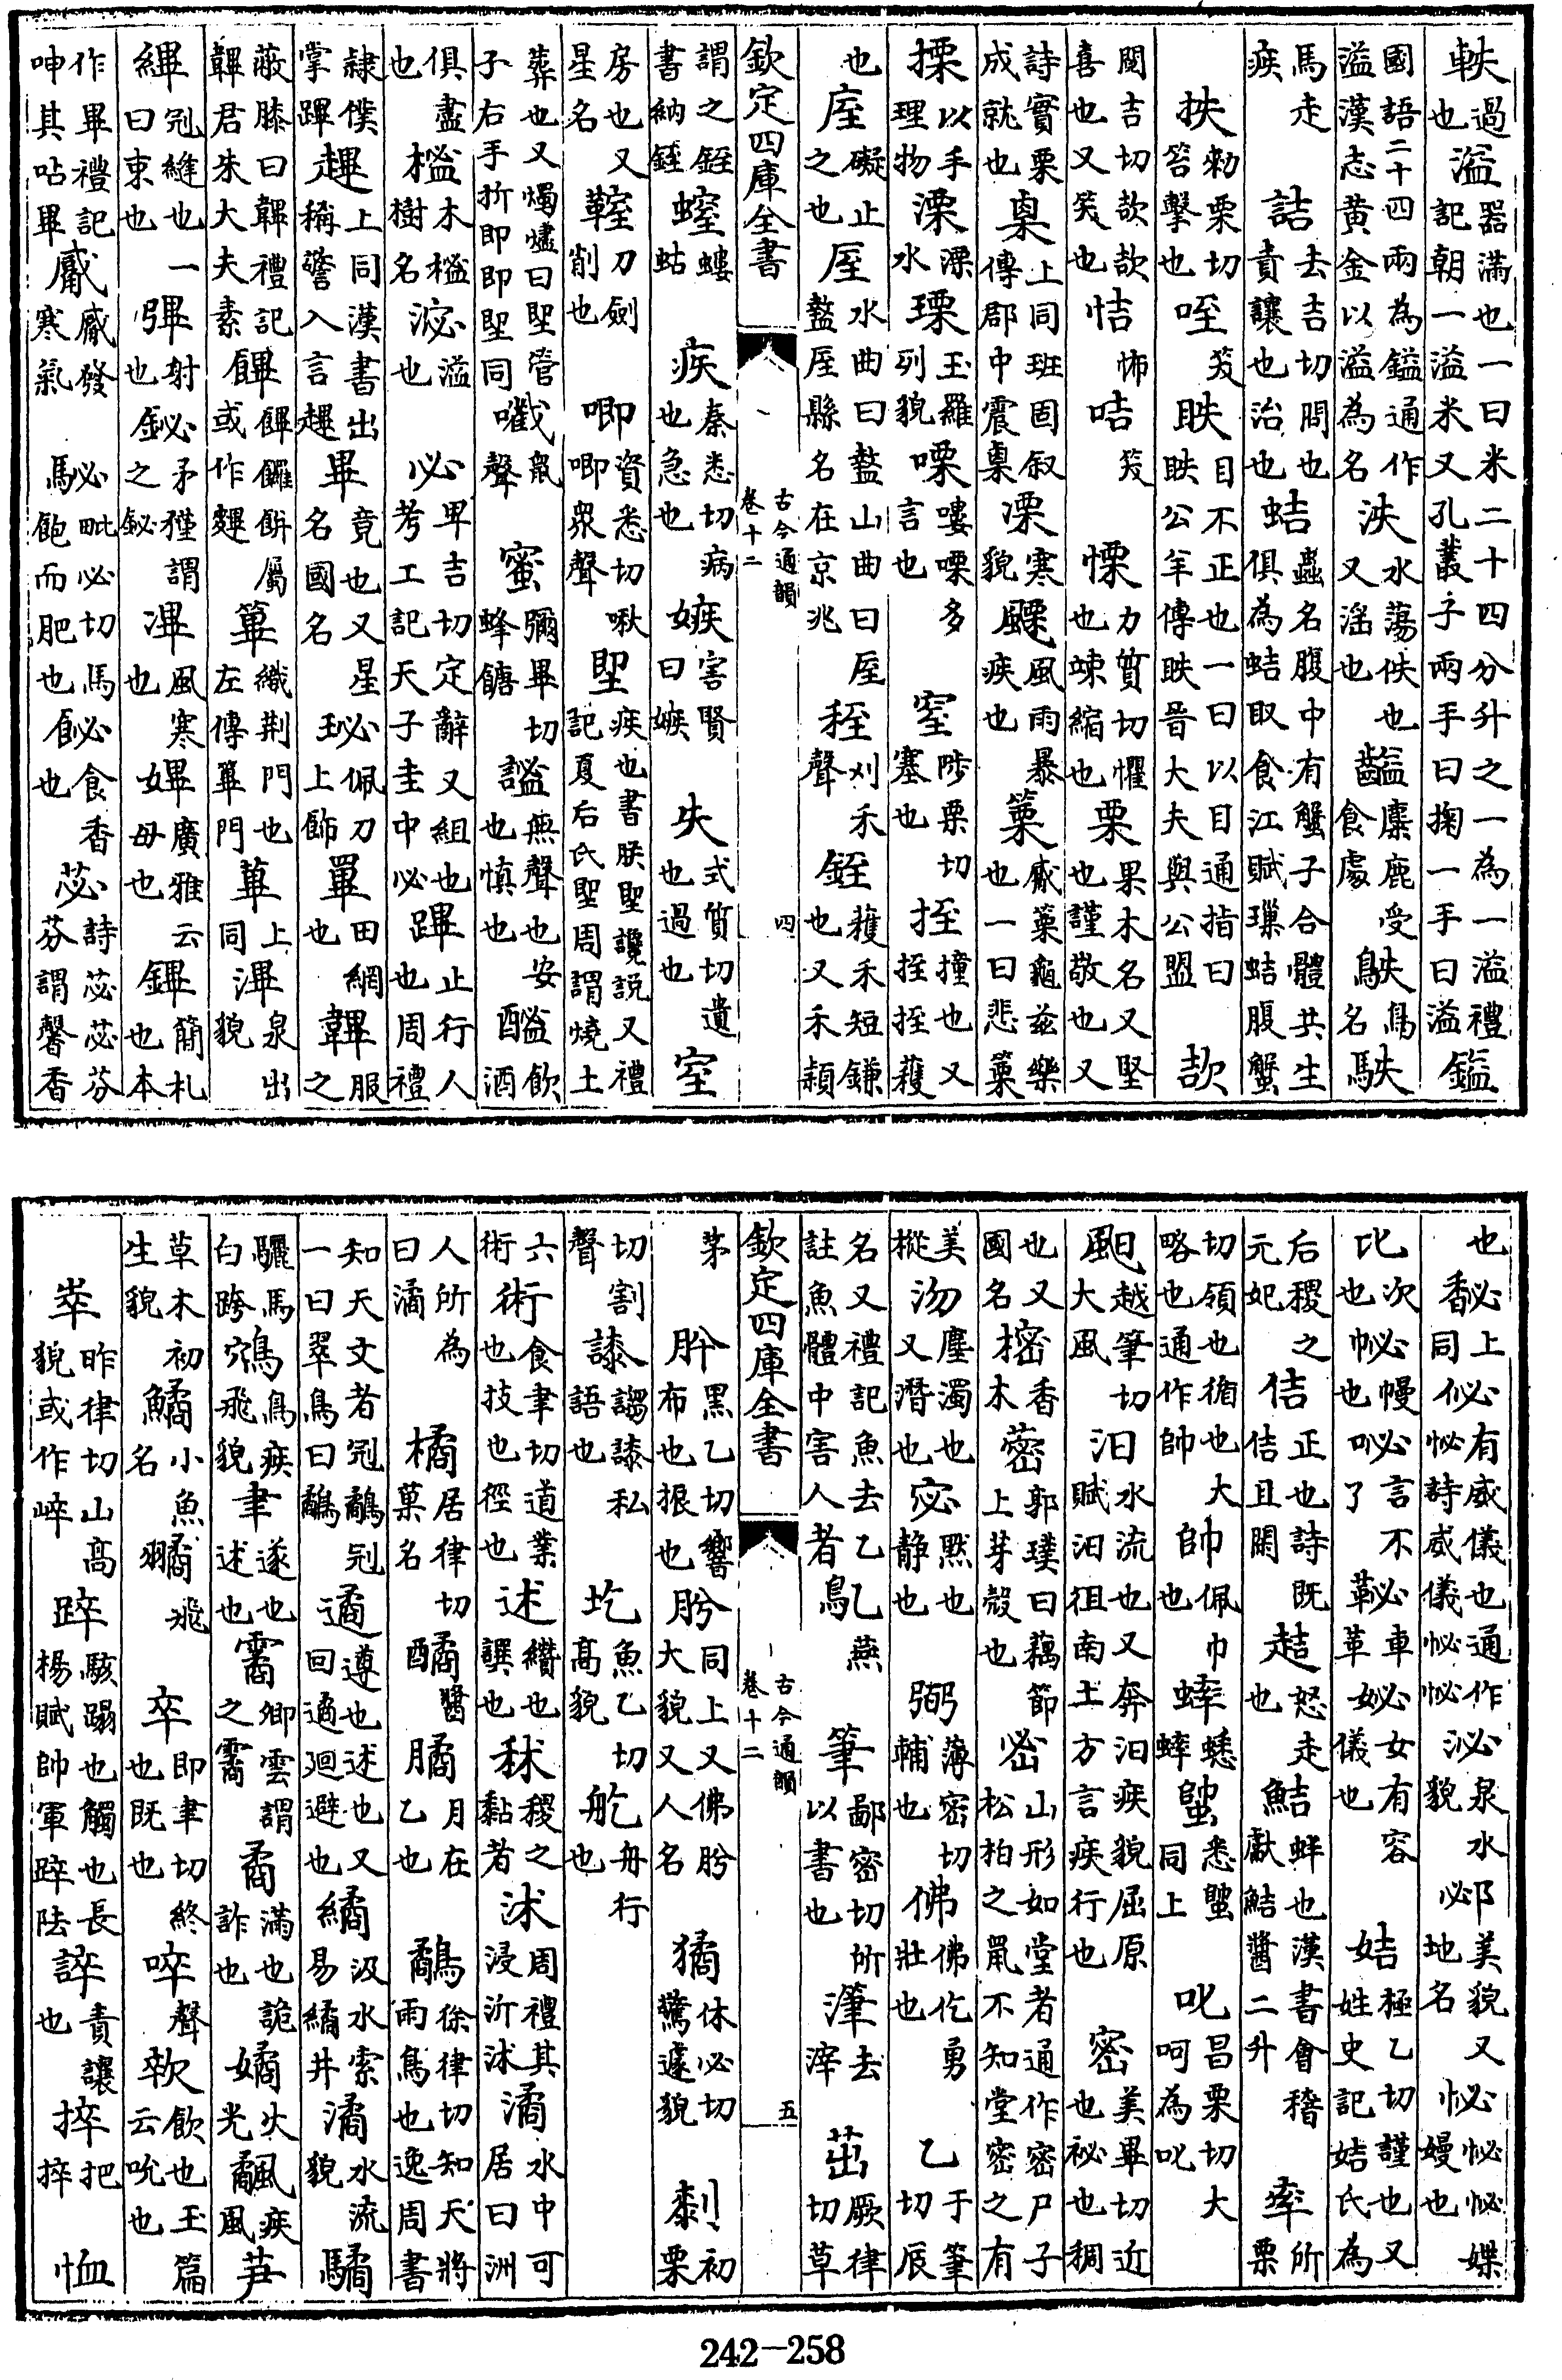 軼過也溢器滿也一曰米二十四分升之一為一溢禮記朝一溢米又孔叢子兩手曰掬一手曰溢鎰
國語二十四兩為鎰通作溢漢志黄金以溢為名泆水蕩泆也又淫也齸麋鹿受食處鴩鳥名䭿
馬走疾詰去吉切問也責讓也治也蛣蟲名腹中有蟹子合體共生俱為蛣取食江賦璅蛣腹蟹
抶勑栗切笞擊也咥笑眣目不正也一曰以目通指曰眣公羊傳眣晉大夫與公盟欯
閱吉切欯欯喜也又笑也恄怖咭笑慄力質切懼也竦縮也栗果木名又堅也謹敬也又
詩實栗成就也㮚上同班固叙傳郡中震㮚凓寒貌颲風雨暴疾也篥觱篥龜兹樂也一曰悲篥
搮以手理物溧溧水瑮玉羅列貌㗚嘍㗚多言也窒陟栗切塞也挃撞也又挃挃穫
也庢礙止之也厔水曲曰盩山曲曰厔盩厔縣名在京兆秷刈禾聲銍穫禾短鎌也又禾穎
欽定四庫全書 古今通韻 卷十二 四
謂之銍書納銍螲螻蛄疾秦悉切病也急也嫉害賢曰嫉失式質切遺也過也室
房也又星名刀劍削也唧資悉切啾唧衆聲堲疾也書朕堲讒説又禮記夏后氏堲周謂燒土
葬也又燭燼曰堲管子右手折即即堲同㘍鼠聲蜜彌畢切蜂餹謐無聲也安也慎也飲酒
俱盡也榓木榓樹名淧溢也必卑吉切定辭又組也考工記天子圭中必蹕止行人也周禮
隸僕掌蹕䟆上同漢書出稱警入言䟆畢竟也又星名國名珌佩刀上飾罼田網也韠服之
蔽膝曰韠禮記韠君朱大夫素饆饆饠餅屬或作䴶篳織荆門也左傳篳門蓽上同滭泉出貌
縪冠縫也一曰束也彃射也鉍矛矜謂之鉍滭風寒也廣雅云母也鏎簡札也本
作畢禮記呻其呫畢觱觱發寒氣駜毗必切馬飽而肥也飶食香也苾詩苾苾芬芬謂馨香
也馝上同佖有威儀也通作怭詩威儀怭怭泌泉水貌邲美貌又地名怭怭怭媟嫚也
比次也㡙幔也咇言不了䩛車革妼女有容儀也姞極乙切謹也又姓史記姞氏為
后稷之元妃佶正也詩既佶且閑趌怒走也鮚蚌也漢書會稽獻鮚醬二升率所栗
切領也循也大略也通作帥帥佩巾也蟀蟋蟀悉同上叱昌栗切大呵為叱
越筆切大風汨水流也又奔汨疾貌屈原賦汨徂南土方言疾行也密美畢切近也祕也稠
也又國名樒香木蔤郭璞曰藕節上芽殼也密山形如堂者通作密尸子松柏之鼠不知堂密之有
美樅沕塵濁也又潛也宓默也静也弼薄密切輔也佛佛仡勇壯也乙于筆切辰
名又禮記魚去乙註魚體中害人者鳦燕筆鄙密切所以書也潷去滓茁厥律切草
欽定四庫全書 古今通韻 卷十二 五
茅肸黒乙切響布也振也肹同上又佛肹大貌又人名獝休必切驚遽貌㓼初栗
切割聲私語也圪魚乙切高貌舟行也
六術術食聿切道業也技也徑也述纘也譔也秫稷之黏者沭周禮其浸沂沭潏水中可居曰洲
人所為曰潏橘居律切菓名醬月在乙也鷸徐律切知天將雨鳥也逸周書
知天文者冠鷸冠一曰翠鳥曰鷸遹遵也述也又回遹迴避也繘汲水索易繘井潏水流貌驈
驪馬白跨鴥鳥疾飛貌聿遂也述也霱卿雲謂之霱矞滿也詭詐也㚄火光䬂疾風芛
草木初生貌鱊小魚名飛卒即聿切終也既也啐聲飲也玉篇云吮也
崒昨律切山高貌或作崪踤駭蹋也觸也長楊賦帥軍踤阹誶責讓也捽把捽恤
242-258